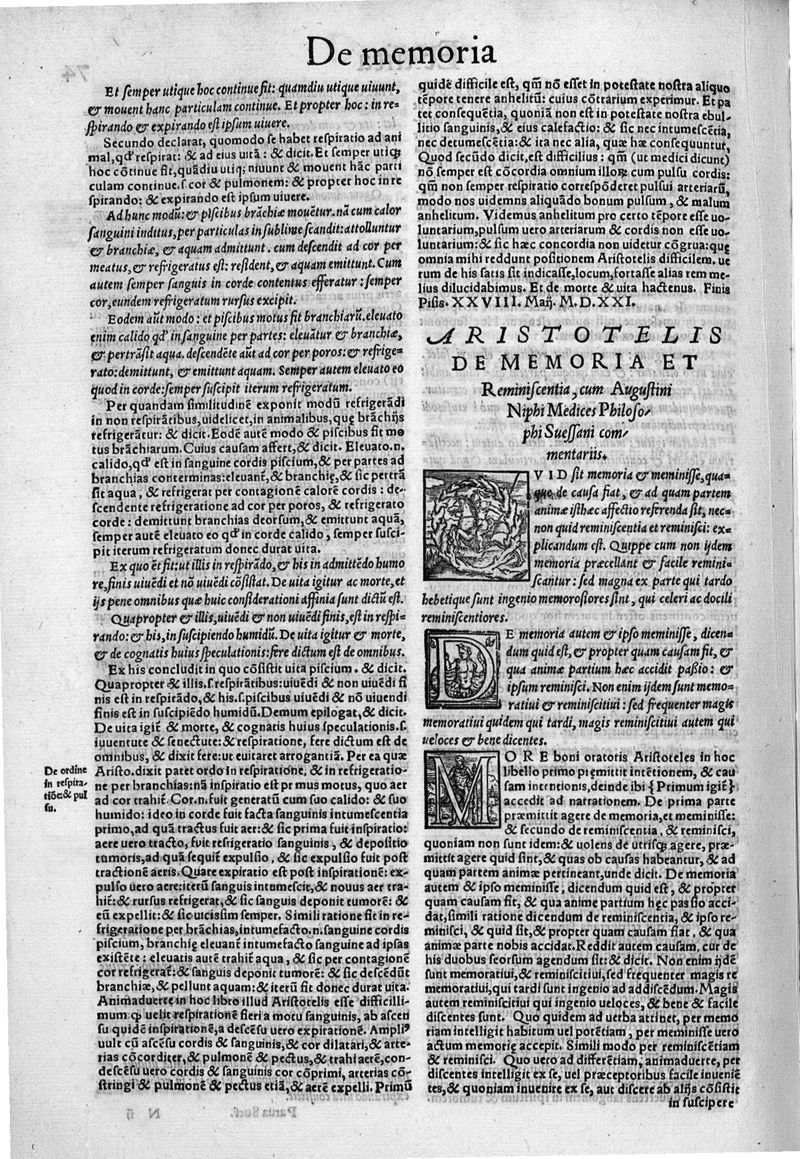 De memoria
Et semper utique hoc continue fit: quamdiu utique uiuunt,
& mouent hanc particulam continue. Et propter hoc: in re-
spirando & expirando est ipsum uiuere.
Secundo declarat, quomodo se habet respiratio ad ani
mal, qđ respirat: & ad eius uitã: & dicit. Et semper utiq;
hoc cõtinue fit, quãdiu utiq; uiuunt & mouent hãc parti
culam continue. s. cor & pulmonem: & propter hoc in re
spirando: & expirando est ipsum uiuere.
Ad hunc modũ: & piscibus brãchiæ mouẽtur. nã cum calor
sanguini inditus, per particulas in sublime scandit: attolluntur
& branchiæ, & aquam admittunt. cum descendit ad cor per
meatus, & refrigeratus est: resident, & aquam emittunt. Cum
autem semper sanguis in corde contentus efferatur: semper
cor, eundem refrigeratum rursus excipit.
Eodem aũt modo: et piscibus motus fit branchiarũ. eleuato
enim calido qđ in sanguine per partes: eleuãtur & branchiæ,
& pertrãsit aqua. descendẽte aũt ad cor per poros: & refrige-
rato: demittunt, & emittunt aquam. Semper autem eleuato eo
quod in corde: semper suscipit iterum refrigeratum.
Per quandam similitudinẽ exponit modũ refrigerãdi
in non respirãtibus, uidelicet, in animalibus, quę brãchijs
refrigerãtur: & dicit. Eodẽ autẽ modo & piscibus fit mo
tus brãchiarum. Cuius causam affert, & dicit. Eleuato. n.
calido, qđ est in sanguine cordis piscium, & per partes ad
branchias conterminas: eleuant̃, & branchię, & sic pertrã
sit aqua, & refrigerat per contagionẽ calorẽ cordis: de-
scendente refrigeratione ad cor per poros, & refrigerato
corde: demittunt branchias deorsum, & emittunt aquã,
semper autẽ eleuato eo qđ in corde calido, semper susci-
pit iterum refrigeratum donec durat uita.
Ex quo ẽt fit: ut illis in respirãdo, & his in admittẽdo humo
re, finis uiuẽdi et nõ uiuẽdi cõsistat. De uita igitur ac morte, et
ijs pene omnibus quæ huic considerationi affinia sunt dictũ est.
Quapropter & illis, uiuẽdi & non uiuendi finis, est in respi-
rando: & his, in suscipiendo humidũ. De uita igitur & morte,
& de cognatis huius speculationis: fere dictum est de omnibus.
Ex his concludit in quo cõsistit uita piscium. & dicit.
Quapropter & illis. s. respirãtibus: uiuẽdi & non uiuẽdi fi
nis est in respirãdo, & his. s. piscibus uiuẽdi & nõ uiuendi
finis est in suscipiẽdo humidũ. Demum epilogat, & dicit.
De uita igit̃ & morte, & cognatis huius speculationis. s.
iuuentute & senectute: & respiratione, fere dictum est de
omnibus, & dixit fere: ut euitaret arrogantiã. Per ea quæ
Aristo. dixit patet ordo in respiratione, & in refrigeratio-
ne per branchias: nã inspiratio est primus motus, quo aer
ad cor trahit̃. Cor. n. fuit generatũ cum suo calido: & suo
humido: ideo in corde fuit facta sanguinis intumescentia
primo, ad quã tractus fuit aer: & sic prima fuit inspiratio:
aere uero tracto, fuit refrigeratio sanguinis, & depositio
tumoris, ad quã sequit̃ expulsio, & sic expulsio fuit post
tractionẽ aeris. Quare expiratio est post inspirationẽ: ex-
pulso uero aere: iterũ sanguis intumescit, & nouus aer tra-
hit̃: & rursus refrigerat, & sic sanguis deponit tumorẽ: &
eũ expellit: & sic uicissim semper. Simili ratione fit in re-
frigeratione per brãchias, intumefacto. n. sanguine cordis
piscium, branchię eleuant̃ intumefacto sanguine ad ipsas
existẽte: eleuatis autẽ trahit̃ aqua, & sic per contagionẽ
cor refrigerat̃: & sanguis deponit tumorẽ: & sic descẽdũt
branchiæ, & pellunt aquam: & iterũ fit donec durat uita.
Animaduerte in hoc libro illud Aristotelis esse difficilli-
mum ꝙ uelit respirationẽ fieri a motu sanguinis, ab ascen
su quidẽ inspirationẽ, a descẽsu uero expirationẽ. Ampli'
uult cũ ascẽsu cordis & sanguinis, & cor dilatari, & arte-
rias cõcorditer, & pulmonẽ & pectus, & trahi aerẽ, con-
descẽsu uero cordis & sanguinis cor cõprimi, arterias cõ-
stringi & pulmonẽ & pectus etiã, & aerẽ expelli. Primũ
De ordine
in respira-
tiõe: & pul
su.
quidẽ difficile est, qm̃ nõ esset in potestate nostra aliquo
tẽpore tenere anhelitũ: cuius cõtrarium experimur. Et pa
tet consequẽtia, quoniã non est in potestate nostra ebul-
litio sanguinis, & eius calefactio: & sic nec intumescẽtia,
nec detumescẽtia: & ita nec alia, quæ hæc consequuntur.
Quod secũdo dicit, est difficilius: qm̃ (ut medici dicunt)
nõ semper est cõcordia omnium illoꝝ cum pulsu cordis:
qm̃ non semper respiratio correspõderet pulsui arteriarũ,
modo nos uidemus aliquãdo bonum pulsum, & malum
anhelitum. Videmus anhelitum pro certo tẽpore esse uo-
luntarium, pulsum uero arteriarum & cordis non esse uo-
luntarium: & sic hæc concordia non uidetur cõgrua: quę
omnia mihi reddunt positionem Aristotelis difficilem. ue
rum de his satis sit indicasse, locum, fortasse alias rem me-
lius dilucidabimus. Et de morte & uita hactenus. Finis
Pisis. XXVIII. Maij. M.D.XXI.
ARISTOTELIS
DE MEMORIA ET
Reminiscentia, cum Augustini
Niphi Medices Philoso-
phi Suessani com-
mentariis.
QVID sit memoria & meminisse, qua-
que de causa fiat, & ad quam partem
animæ isthæc affectio referenda sit, nec-
non quid reminiscentia et reminisci: ex-
plicandum est. Quippe cum non ijdem
memoria præcellant & facile remini-
scantur: sed magna ex parte qui tardo
hebetique sunt ingenio memorosiores sint, qui celeri ac docili
reminiscentiores.
DE memoria autem & ipso meminisse, dicen-
dum quid est, & propter quam causam fit, &
qua animæ partium hæc accidit paßio: &
ipsum reminisci. Non enim ijdem sunt memo-
ratiui & reminiscitiui: sed frequenter magis
memoratiui quidem qui tardi, magis reminiscitiui autem qui
ueloces & bene dicentes.
MORE boni oratoris Aristoteles in hoc
libello primo pręmittit intẽtionem, & cau
sam intentionis, deinde ibi {Primum igit̃}
accedit ad narrationem. De prima parte
præmittit agere de memoria, et meminisse:
& secundo de reminiscentia, & reminisci,
quoniam non sunt idem: & uolens de utrisq; agere, præ-
mittit agere quid sint, & quas ob causas habeantur, & ad
quam partem animæ pertineant, unde dicit. De memoria
autem & ipso meminisse, dicendum quid est, & propter
quam causam fit, & qua animę partium hęc passio acci-
dat, simili ratione dicendum de reminiscentia, & ipso re-
minisci, & quid sit, & propter quam causam fiat, & qua
animæ parte nobis accidat. Reddit autem causam, cur de
his duobus seorsum agendum sit: & dicit. Non enim ijdẽ
sunt memoratiui, & reminiscitiui, sed frequenter magis re
memoratiui, qui tardi sunt ingenio ad addiscẽdum. Magis
autem reminiscitiui qui ingenio ueloces, & bene & facile
discentes sunt. Quo quidem ad uerba attinet, per memo
riam intelligit habitum uel potẽtiam, per meminisse uero
actum memorię accepit. Simili modo per reminiscẽtiam
& reminisci. Quo uero ad differẽtiam, animaduerte, per
discentes intelligit ex se, uel præceptoribus facile inuenien
tes, & quoniam inuenire ex se, aut discere ab alijs cõsistit
in suscipere